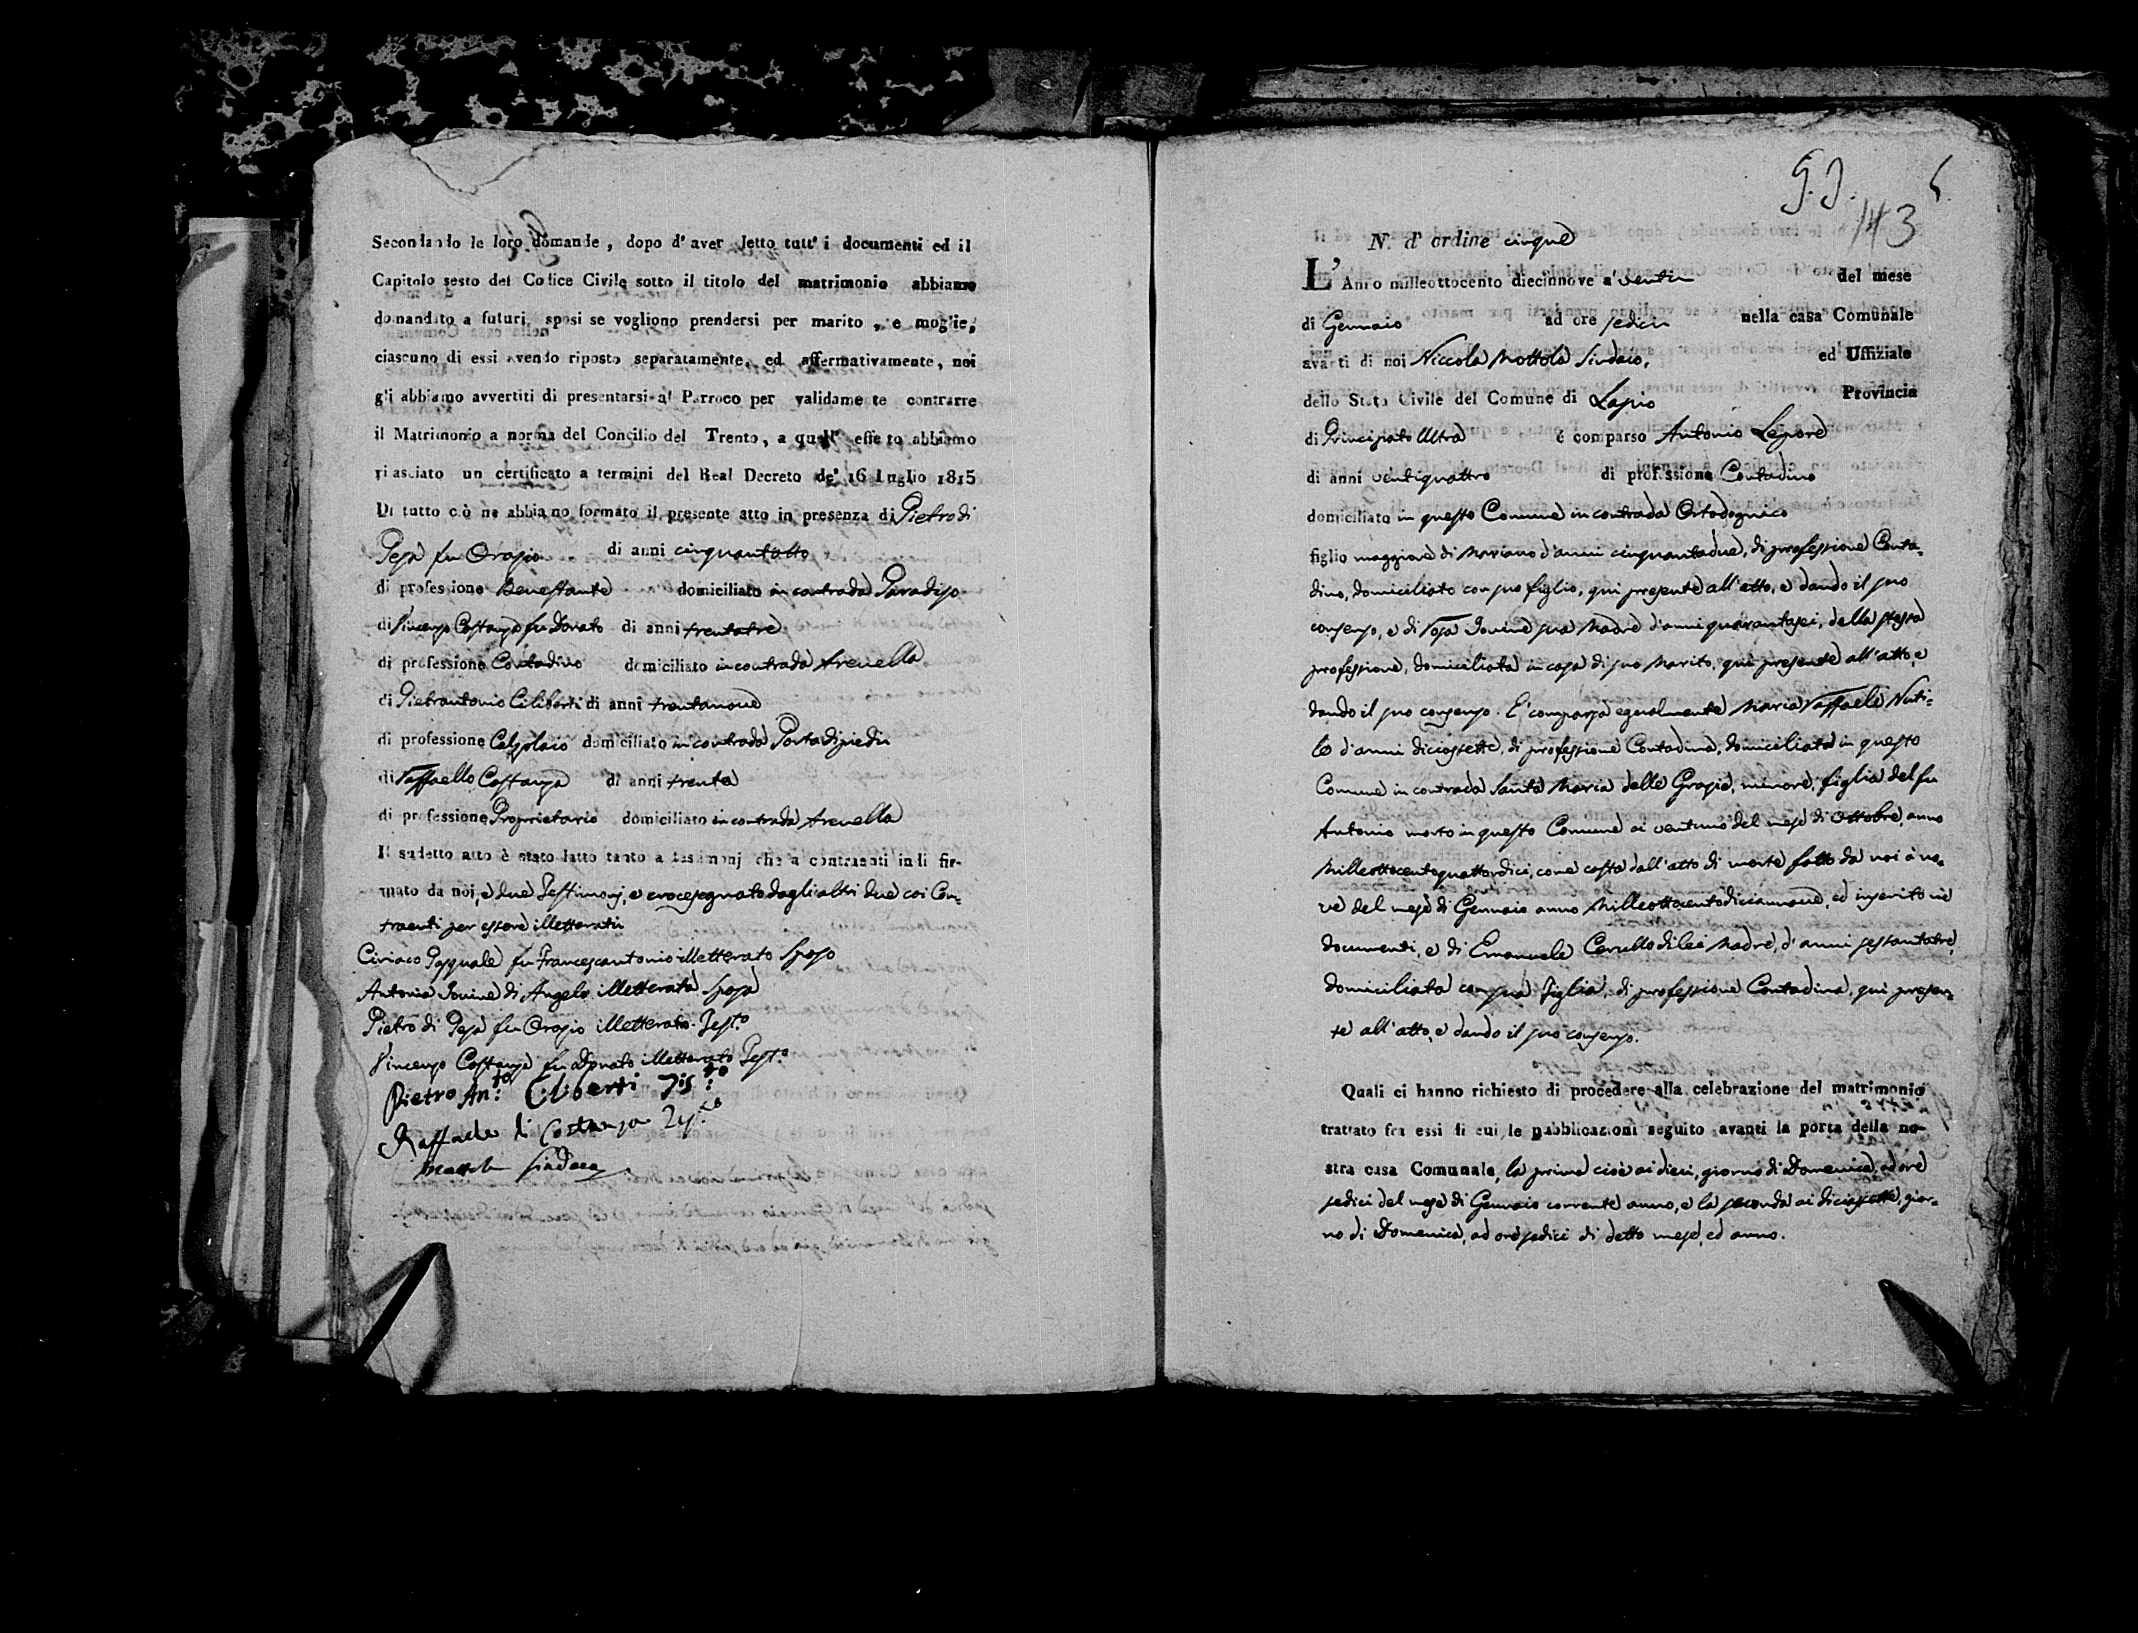 Secondando le loro domande, dopo d'aver letto tutt' i documenti ed il
Capitolo sesto del Codice Civile sotto il titolo del matrimonio abbiamo
domandato a futuri sposi se vogliono prendersi per marito, e moglie,
ciascuno di essi avendo riposto separatamente, ed affermativamente, noi
gli abbiamo avvertiti di presentarsi al Parroco per validamente contrarre
il Matrimonio a norma del Concilio del Trento, a quell' effetto abbiamo
rilasciato un certificato a termini del Real Decreto de' 16 Luglio 1815
Di tutto ciò ne abbiamo formato il presente atto in presenza di Pietro di
Pesa fu Orazio di anni cinquantotto
di professione Benestante domiciliato in contrada Paradiso
di Vincenzo Costanza fu Donato di anni trentatre
di professione Contadino domiciliato in contrada Arenella
di Pietrantonio Ciliberti di anni trentanove
di professione Calzolaio domiciliato in contrada Portadipiedi
di Raffaello Costanza di anni trenta
di professione Proprietario domiciliato in contrada Arenella
Il sudetto atto è stato letto tanto a testimonj che a contraenti indi fir-
mato da noi, e due Testimonj, e crocesegnato dagli altri due coi Con-
traenti per essere illetterati
Ciriaco Pasquale fu Francescantonio illetterato Sposo
Antonia Iovine di Angelo illetterata Sposa
Pietro di Pesa fu Orazio illetterato Test.o
Vincenzo Costanza fu Donato illetterato Test.o
Pietro An:to Ciliberti Tis:to
Raffaele di Costanza
Mottola Sindaco
143
N. d' ordine cinque
L' Anno milleottocento diecinnove a' venti del mese
di Gennaio ad ore sedici nella casa Comunale
avanti di noi Niccola Mottola Sindaco, ed Uffiziale
dello Stato Civile del Comune di Lapio Provincia
di Principato Ultra è comparso Antonio Lepore
di anni ventiquattro di professione Contadino
domiciliato in questo Comune in contrada Ortodognico
figlio maggiore di Mariano d'anni cinquantadue, di professione Conta-
dino, domiciliato con suo figlio, qui presente all'atto, e dando il suo
consenso, e di Rosa Iovine sua Madre d'anni quarantasei, della stessa
professione, domiciliata in casa di suo Marito, qui presente all'atto, e
dando il suo consenso. E' comparsa egualmente Maria Raffaela Nuti-
lo d'anni diciossette, di professione Contadina, domiciliata in questo
Comune in contrada Santa Maria delle Grazie, minore, figlia del fu
Antonio morto in questo Comune ai ventuno del mese di Ottobre, anno
Milleottocentoquattordici, come costa dall'atto di morte fatto da noi a no-
ve del mese di Gennaio anno Milleottocentodiciannove, ed inserito ne'
documenti, e di Emanuele Cerullo di lei Madre, d'anni sessantatre,
domiciliata con sua figlia, di professione Contadina, qui presen-
te all'atto, e dando il suo consenso.
Quali ci hanno richiesto di procedere alla celebrazione del matrimonio
trattato fra essi di cui le pubblicazioni seguito avanti la porta della no-
stra casa Comunale, la prima cioè ai dieci, giorno di Domenica, ad ore
sedici del mese di Gennaio corrente anno, e la seconda ai diciassette, gior-
no di Domenica, ad ore sedici di detto mese, ed anno.